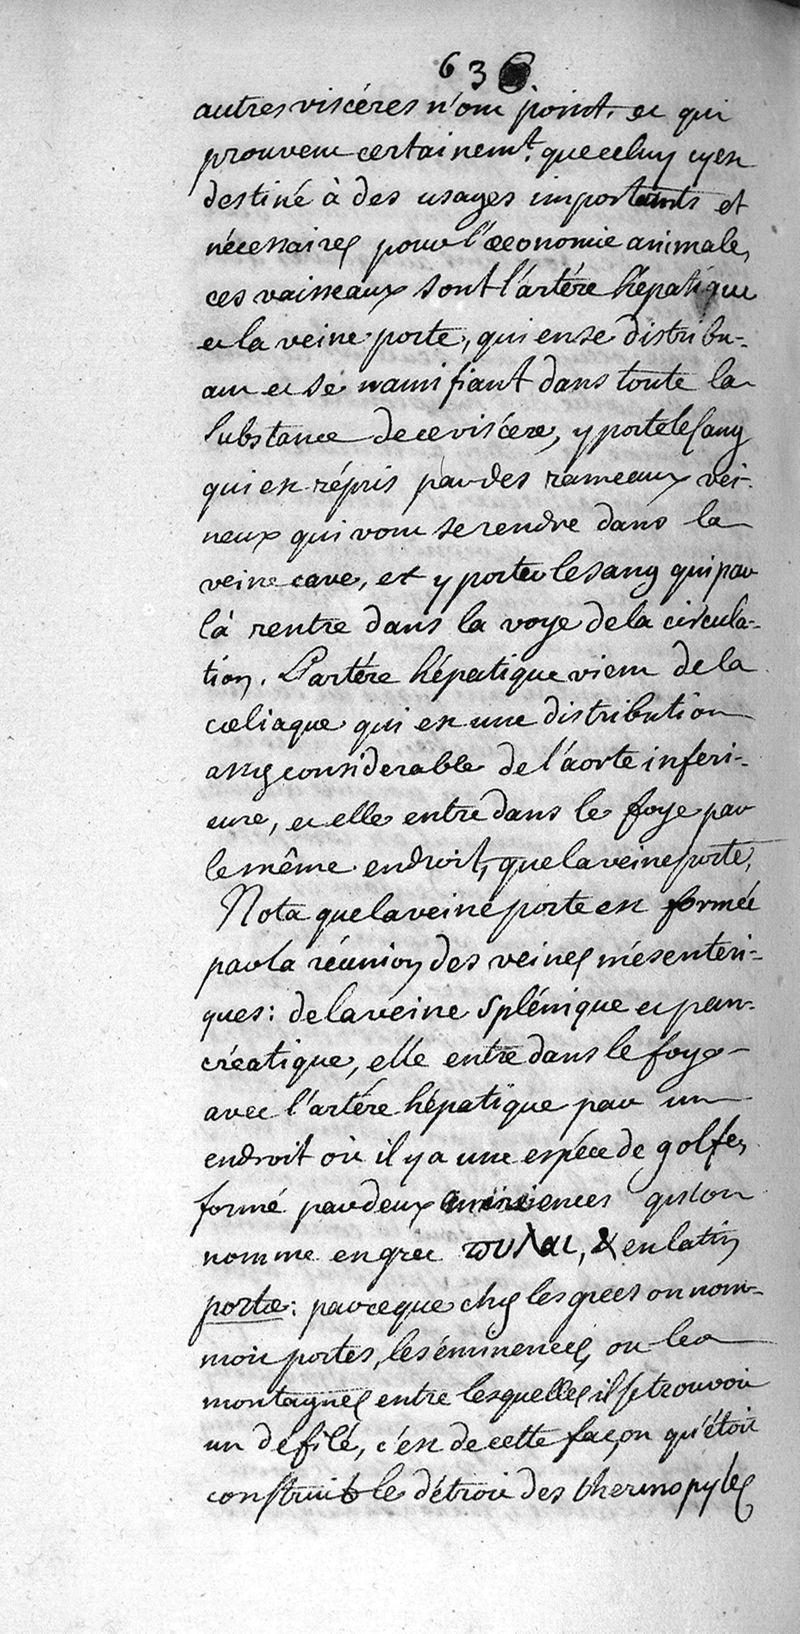 636.
autres viscéres n'ont point. et qui
prouvent certainemt. que celuy cy est
destiné à des usages importants et
nécessaires pour l'œconomie animale,
ces vaisseaux sont l'artére hépatique
et la veine porte, qui en se distribu-
ant et se ramifiant dans toute la
substance de ce viscére, y porte le sang
qui est répris par des rameaux vei-
neux qui vont se rendre dans la
veine cave, et y porter le sang qui par
là rentre dans la voye de la circula-
tion. L'artére hépatique vient de la
cœliaque qui est une distribution
assez considerable de l'aorte inferi-
eure, et elle entre dans le foye par
le même endroit, que la veine porte,
Nota que la veine porte est formée
par la réunion des veines mésenteri-
ques: de la veine splénique et pan-
créatique, elle entre dans le foye
avec l'artére hépatique par un
endroit où il y a une espéce de golfe,
formé par deux éminences qu'on
nomme en grec πυλαι, & en latin
portæ: parceque chez les grecs on nom-
moit portes, les éminences, ou les
montagnes entre lesquelles il se trouvoit
un défilé, c'est de cette façon qu'étoit
construit le détroit des thermopyles